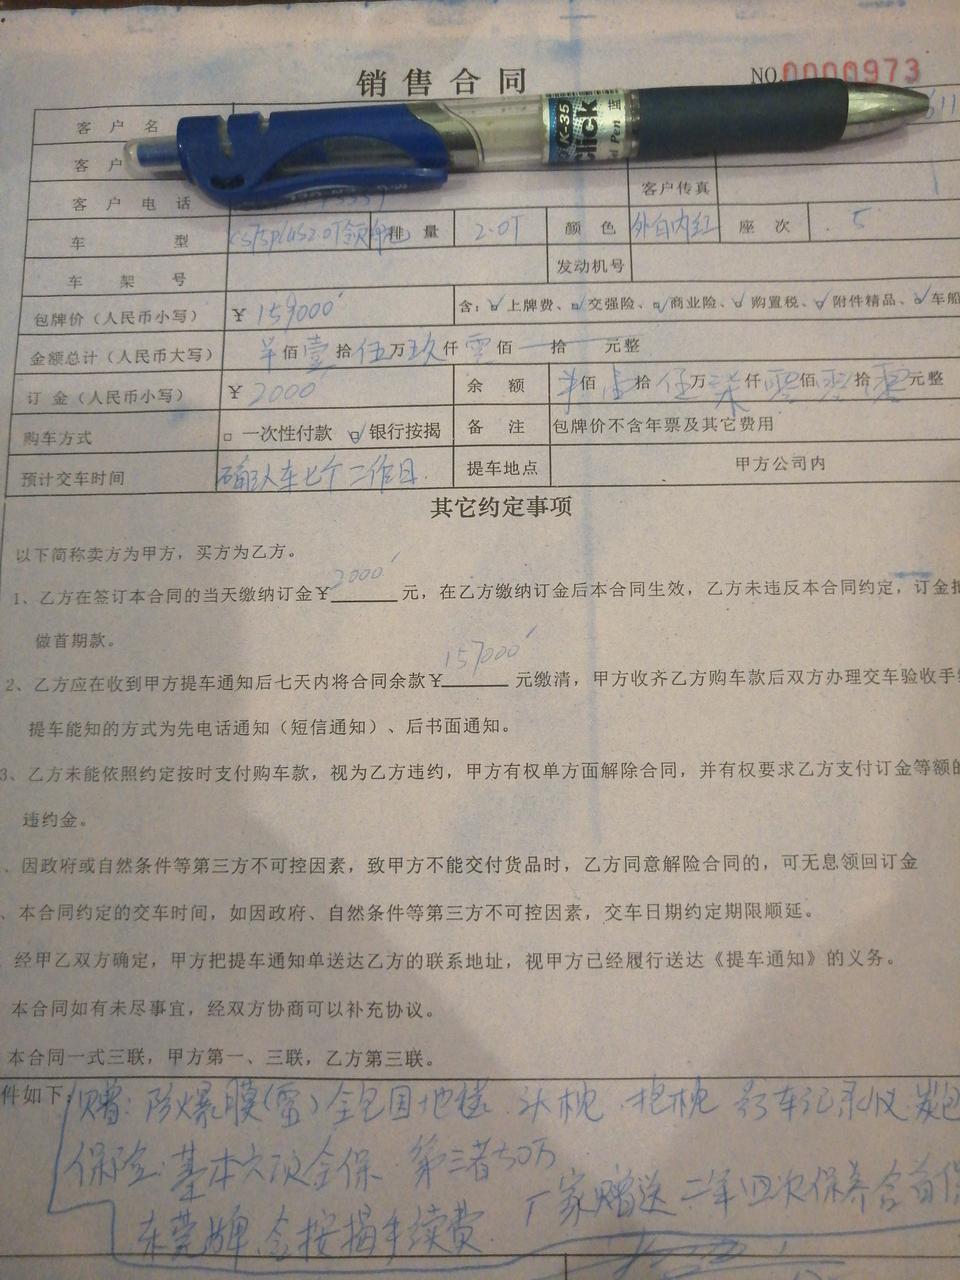 销售合同 NO.0000973
客户名
客户
客户电话 客户传真
车型 排量 2.0T 颜色 外白内红 座次 5
车架号 发动机号
包牌价（人民币小写） ¥ 159000 含：上牌费、交强险、商业险、购置税、附件精品、车船
金额总计（人民币大写） 佰壹拾伍万玖仟零佰 拾 元整
订金（人民币小写） ¥ 2000 余额 佰壹拾伍万柒仟零佰零拾零元整
购车方式 一次性付款 银行按揭 备注 包牌价不含年票及其它费用
预计交车时间 确认车七个工作日. 提车地点 甲方公司内
其它约定事项
以下简称卖方为甲方，买方为乙方。
1、乙方在签订本合同的当天缴纳订金¥2000元，在乙方缴纳订金后本合同生效，乙方未违反本合同约定，订金把
做首期款。
2、乙方应在收到甲方提车通知后七天内将合同余款¥157000元缴清，甲方收齐乙方购车款后双方办理交车验收手
提车能知的方式为先电话通知（短信通知）、后书面通知。
3、乙方未能依照约定按时支付购车款，视为乙方违约，甲方有权单方面解除合同，并有权要求乙方支付订金等额的
违约金。
、因政府或自然条件等第三方不可控因素，致甲方不能交付货品时，乙方同意解险合同的，可无息领回订金
、本合同约定的交车时间，如因政府、自然条件等第三方不可控因素，交车日期约定期限顺延。
经甲乙双方确定，甲方把提车通知单送达乙方的联系地址，视甲方已经履行送达《提车通知》的义务。
本合同如有未尽事宜，经双方协商可以补充协议。
本合同一式三联，甲方第一、三联，乙方第三联。
件如下: 赠: 防爆膜 全包围地毯 头枕 抱枕 行车记录仪
保险:基本六项全保 第三者50万
厂家赠送二年四次保养含首保
东莞牌 含按揭手续费